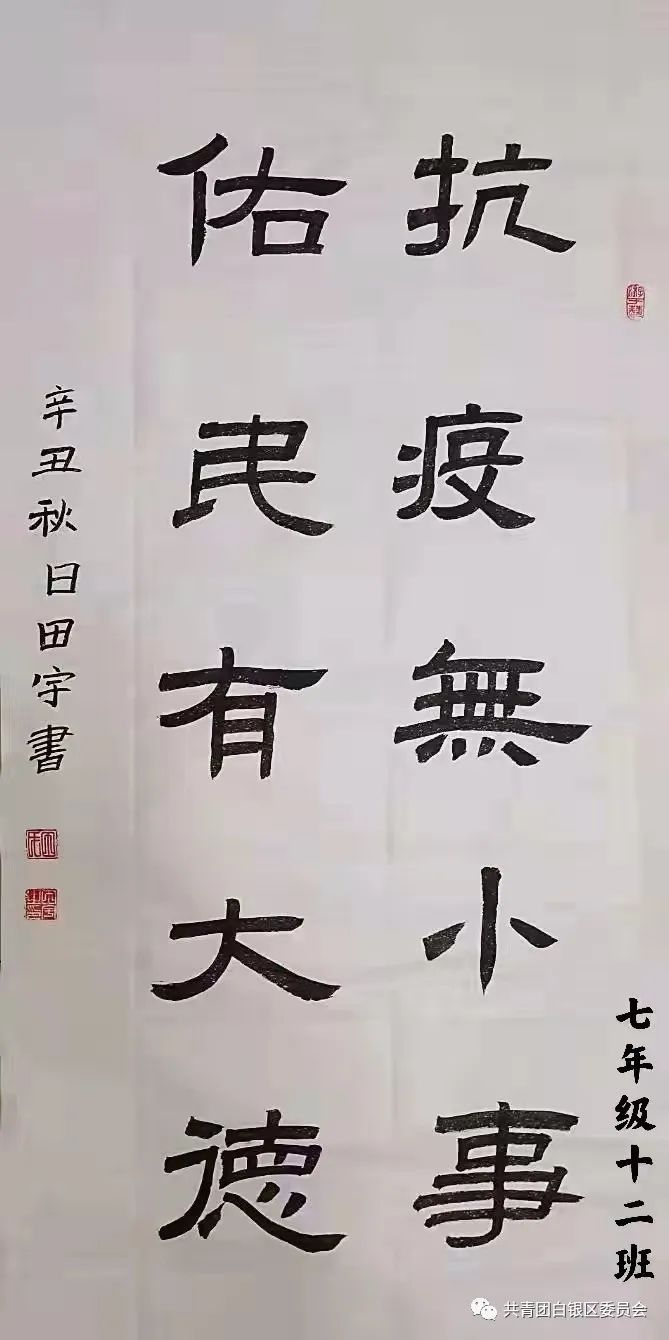 抗疫無小事
佑民有大德
辛丑秋日田宇書
七年级十二班
共青团白银区委员会